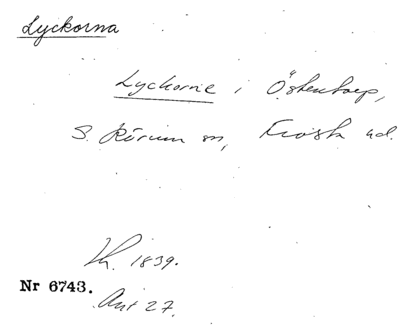 Lyckorna
Lyckorne i Östentorp,
S. Rörum sn, Frosta hd.
Lh. 1839.
Nr 6743.
Ant 27.